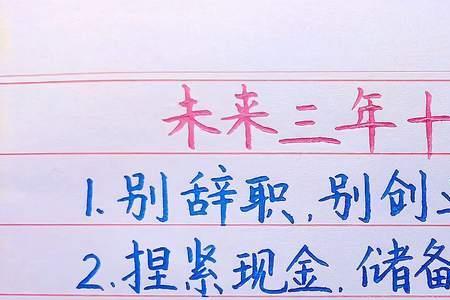 未来三年十
1.别辞职,别创
2.捏紧现金.储备